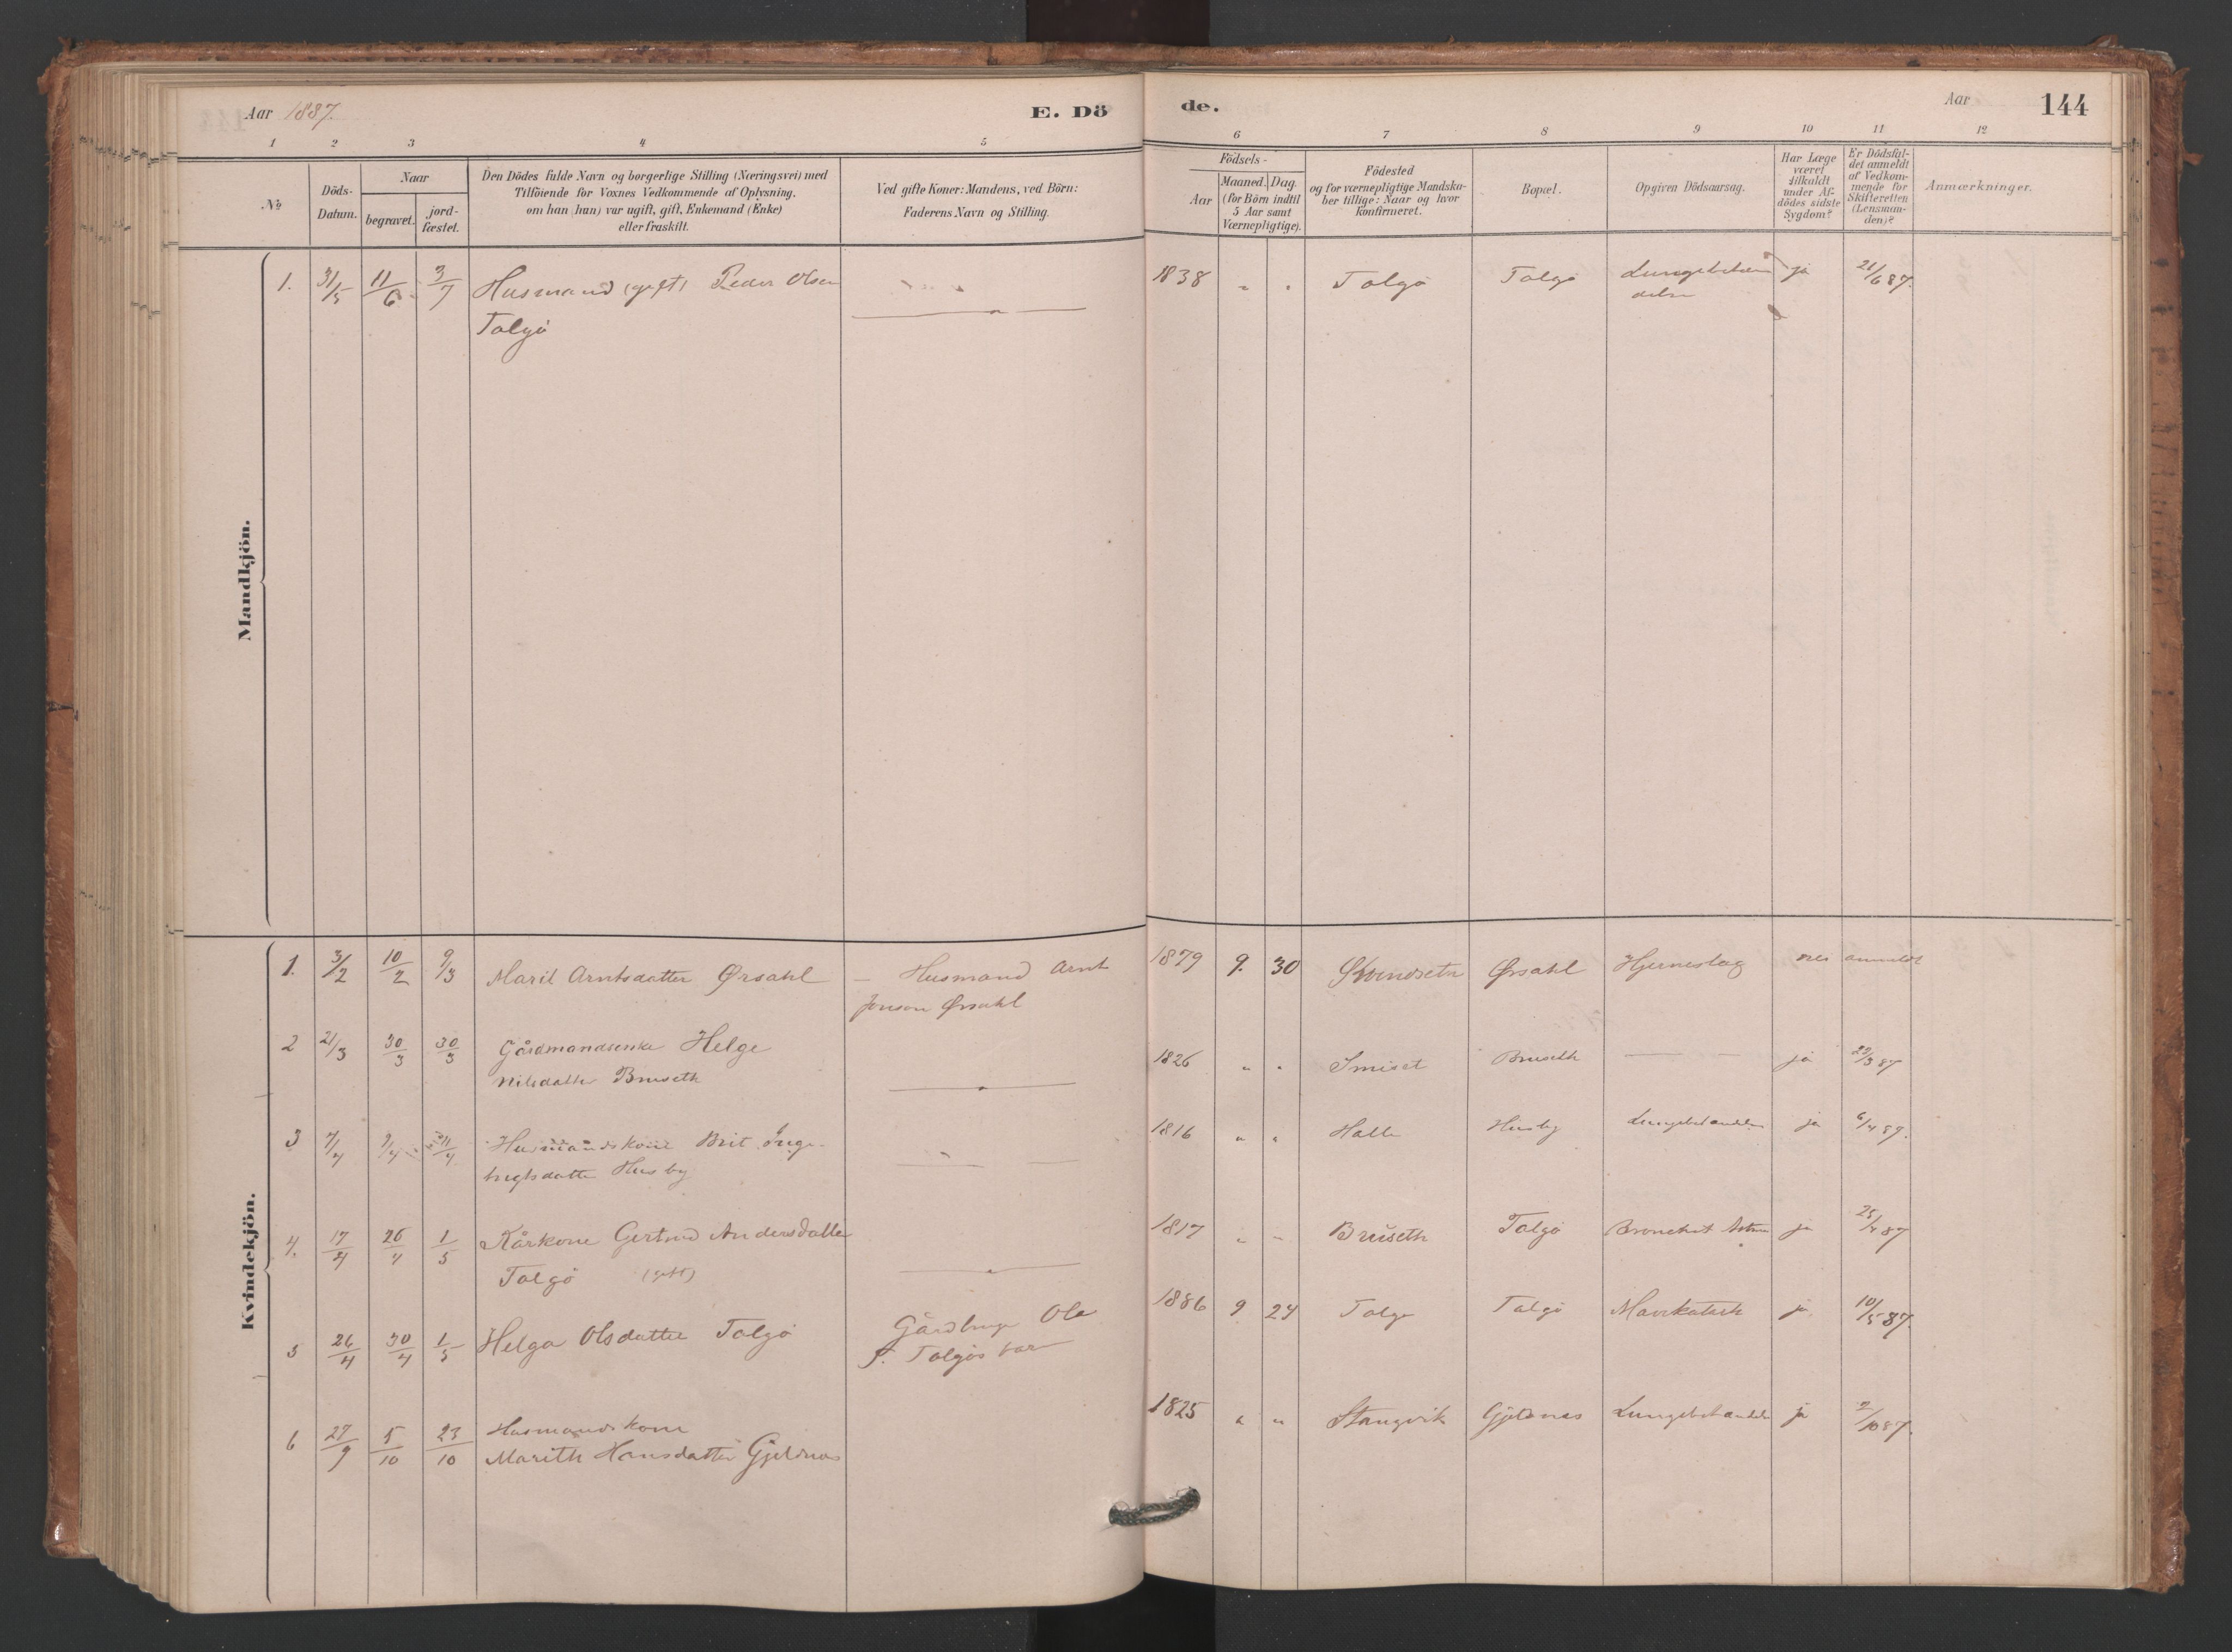 Aar 1887.
E. Dö
de.
Aar
144
1 2 3 4 5
6 7 8 9 10 11 12
No
Döds-
Datum.
Naar
begravet.
jord-
fæstet.
Den Dödes fulde Navn og borgerlige Stilling (Næringsvei) med
Tilföiende for Voxnes Vedkommende af Oplysning.
om han (hun) var ugift, gift, Enkemand (Enke)
eller fraskilt.
Ved gifte Koner: Mandens, ved Börn:
Faderens Navn og Stilling.
Födsels-
Aar
Maaned. Dag.
(for Börn indtil
5 Aar samt
Værnepligtige).
Födested
og for værnepligtige Mandska-
ber tillige: Naar og hvor
konfirmeret.
Bopæl.
Opgiven Dödsaarsag.
Har Læge
været
tilkaldt
under Af-
dödes sidste
Sygdom?
Er Dödsfal-
det anmeldt
af Vedkom-
mende for
Skifteretten
(Lensman-
den)?
Anmærkninger.
Mandkjön.
1. 31/5 11/6 3/7 Husmand (gift) Peder Olsen
Talgö
1838 " " Talgö Talgö ja 21/6 87.
Kvindekjön.
1. 3/2 10/2 9/3 Marit Arntsdatter Ørsahl — Husmand Arnt
Jonson Ørsahl
1879 9. 30 Svendseth Ørsahl Hjerneslag nei anmeldt
2 21/3 30/3 30/3 Gårdmandsenke Helge
Nilsdatter Bruseth
1826 " " Smiset Bruseth ja 22/3 87
3 7/4 9/4 11/4 Husmandskone Brit Inge-
brigtsdatter Husby
1816 " " Halle Husby ja 6/4 87.
4. 17/4 26/4 1/5 Kårkone Gertrud Andersdatter
Talgö (gift)
1817 " " Bruseth Talgö ja 25/4 87
5 26/4 30/4 1/5 Helga Olsdatter Talgö
Gårdbruger Ole
P. Talgös bar
1886 9 24 Talgö Talgö Mavekatarh ja 10/5 87.
6 27/9 5/10 23/10 Husmandskone
Marith Hansdatter Gjeldnæs
1825 " " Stangvik Gjeldnæs ja 2/10 87.